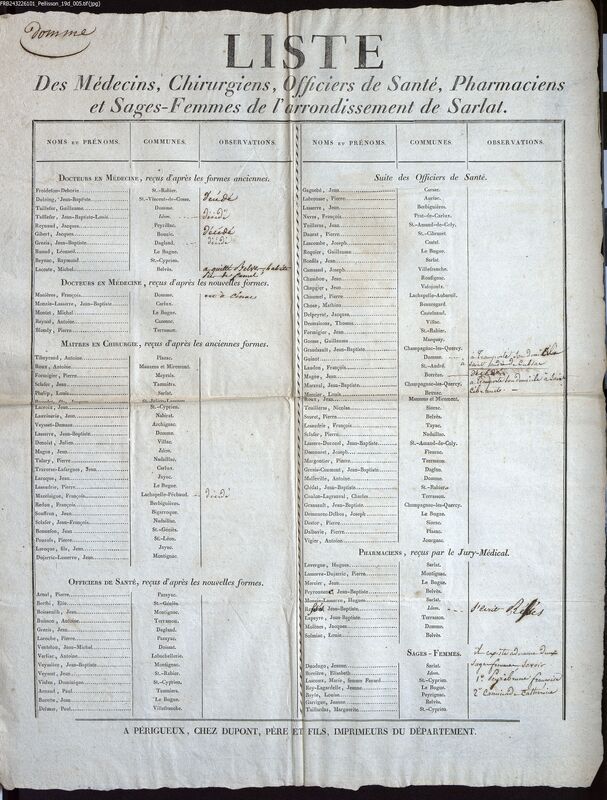 FRB243226101_Pellisson_19d_005.tif(jpg)
Domme
LISTE
Des Médecins, Chirurgiens, Officiers de Santé, Pharmaciens
et Sages-Femmes de l'arrondissement de Sarlat.
NOMS ET PRÉNOMS. COMMUNES. OBSERVATIONS.
DOCTEURS EN MÉDECINE, reçus d'après les formes anciennes.
St.-Rabier.
Delbing, Jean-Baptiste St.-Vincent-de-Cosse. décédé
Taillefer, Guillaume Domme.
Taillefer, Jean-Baptiste-Louis Idem. décédé
Reynaud, Jacques Peyrillac.
Gibert, Jacques Bouzic. décédé
Grezis, Jean-Baptiste Dagland. décédé
Ruaud, Léonard Le Bugue.
Beynac, Raymond St.-Cyprien.
Lacoste, Michel Belvès. a quitté Belvès
DOCTEURS EN MÉDECINE, reçus d'après les nouvelles formes.
Mazières, François Domme.
Monzie-Lasserre, Jean-Baptiste Carlux.
Montet, Michel Le Bugue.
Raynal, Antoine Cazenac.
Blondy, Pierre Terrasson.
MAÎTRES EN CHIRURGIE, reçus d'après les anciennes formes.
Tibeyrand, Antoine Plazac.
Roux, Antoine Mauzens et Miremont.
Formigier, Pierre Meyrals.
Sclafer, Jean Tamniès.
Phelip, Louis Sarlat.
Lacroix, Jean St.-Cyprien.
Lauvinerie, Jean Nabirat.
Veysset-Dumaze Archignac.
Lasserre, Jean-Baptiste Domme.
Denoist, Julien Villac.
Magne, Jean Idem.
Valery, Pierre Nadaillac.
Traverse-Lafargues, Jean Carlux.
Laroque, Jean Jayac.
Lasserdrie, Pierre Le Bugue.
Mazelaigue, François Lachapelle-Péchaud. décédé
Redon, François Berbiguières.
Souffron, Jean Bigarroque.
Sclafer, Jean-François Nadaillac.
Bonnefon, Jean St.-Géniès.
Pourols, Pierre St.-Léon.
Laroque, fils, Jean Jayac.
Dujarric-Lasserre, Jean Montignac.
OFFICIERS DE SANTÉ, reçus d'après les nouvelles formes.
Arnal, Pierre Pazayac.
Berthi, Elie St.-Géniès.
Boissenilh, Jean Montignac.
Buisson, Antoine Terrasson.
Grezis, Jean Dagland.
Laroche, Pierre Pazayac.
Ventelon, Jean-Michel Doissat.
Varliac, Antoine Labachellerie.
Veyssière, Jean-Baptiste Montignac.
Veysset, Jean St.-Rabier.
Vielon, Dominique St.-Cyprien.
Armand, Paul Tamniers.
Barette, Jean Sarlat.
Delmar, Paul Villefranche.
NOMS ET PRÉNOMS. COMMUNES. OBSERVATIONS.
Suite des Officiers de Santé.
Gagnebé, Jean Carsac.
Labrousse, Pierre Auriac.
Lasserre, Jean Berbiguières.
Neyrac, François Prat-de-Carlux.
Teillerie, Jean St.-Amand-de-Coly.
Dauriat, Pierre St.-Cibranet.
Lascombe, Joseph Castel.
Roquier, Guillaume Le Bugue.
Rondix, Jean Sarlat.
Carnazel, Joseph Villefranche.
Chambon, Jean Rouffignac.
Chapgier, Jean Valojoulx.
Chaumel, Pierre Lachapelle-Aubareil.
Chose, Mathieu Beauregard.
Delpeyrat, Jacques Castelnaud.
Desmaisons, Thomas Villac.
Formigier, Jean St.-Rabier.
Gosme, Guillaume Marquay.
Grandsault, Jean-Baptiste Champagnac-les-Quercy.
Guinot Domme. a transporté son domicile
Laudon, François St.-André. à
Magne, Jean Borrèze. décédé
Mazeral, Jean-Baptiste Champagnac-les-Quercy. a transporté son domicile à
Mercier, Louis Beynac.
Roux, Jean Mauzens et Miremont.
Tenilleras, Nicolas Siorac.
Souret, Pierre Belvès.
Lassudrie, François Tayac.
Sclafer, Pierre Nadaillac.
Lasserre-Durosal, Jean-Baptiste St.-Amand-de-Coly.
Dommazet, Joseph Fleurac.
Margontier, Pierre Terrasson.
Grezis-Caumont, Jean-Baptiste Daglan.
Malleville, Antoine Domme.
Clédat, Jean-Baptiste St.-Rabier.
Coulon-Lagranval, Charles Terrasson.
Grassault, Jean-Baptiste Champagnac-les-Quercy.
Desmaures-Dellac, Joseph Le Bugue.
Destor, Pierre Siorac.
Dalbavie, Pierre Plazac.
Vigier, Antoine Journiac.
PHARMACIENS, reçus par le Jury-Médical.
Lavergne, Hugues Sarlat.
Lasserre-Dujarric, Pierre Montignac.
Mercier, Jean Le Bugue.
Peyronnet, Jean-Baptiste Belvès.
Monzie-Lasserre, Hugues Sarlat.
Jean-Baptiste Idem. s'écrit Reffès
Lapeyre, Jean-Baptiste Terrasson.
Molènes, Jacques Domme.
Solmiac, Louis Belvès.
SAGES-FEMMES.
Daudage, Jeanne Sarlat.
Bovière, Elisabeth Idem.
Lacoste, Marie, femme Favard St.-Cyprien.
Rey-Lagardelle, Jeanne Le Bugue.
Bayle, Louise Peyrignac.
Garrigue, Jeanne Belvès.
Taillardas, Marguerite St.-Cyprien.
sage-femme savoir
A PÉRIGUEUX, CHEZ DUPONT, PÈRE ET FILS, IMPRIMEURS DU DÉPARTEMENT.